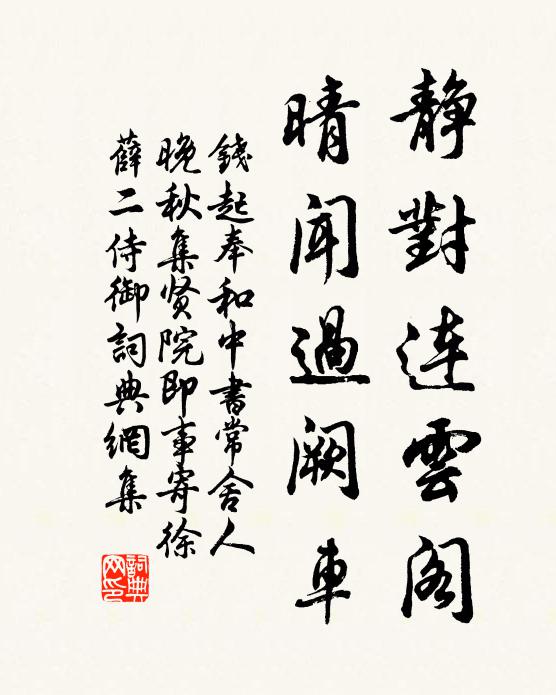 静對連雲閣
晴聞過闕車
錢起奉和中書常舍人
晚秋集贤院即事寄徐
薛二侍御詞典網集
詞典网印